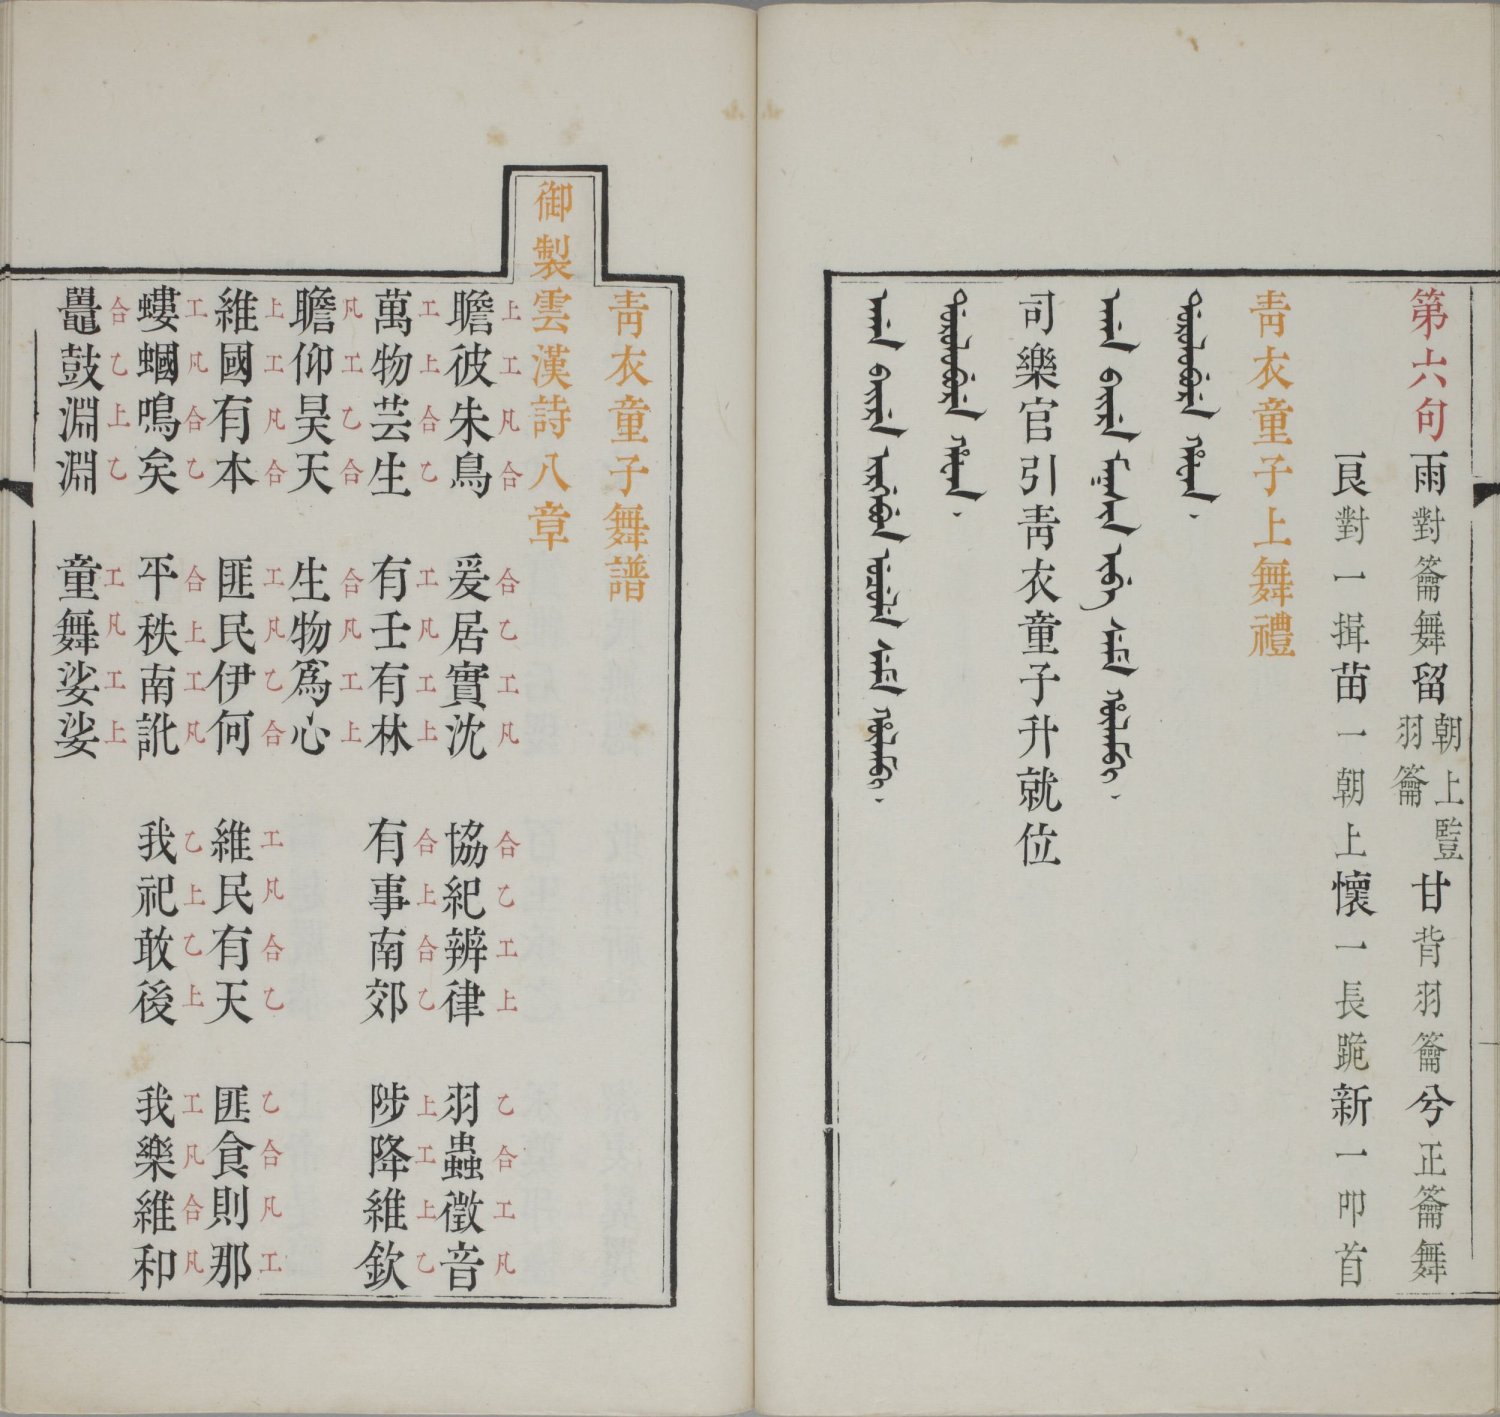 第六句雨對籥舞留朝上豎羽籥甘背羽籥兮正籥舞
良對一揖苗一朝上懷一長跪新一叩首
青衣童子上舞禮
司樂官引青衣童子升就位
青衣童子舞譜
御製雲漢詩八章
上工凡合 合乙工凡 合乙工上 乙合工凡
瞻彼朱鳥 爰居實沈 協紀辨律 羽蟲徵音
工上合乙 工凡工上 合上合乙 上工上乙
萬物芸生 有壬有林 有事南郊 陟降維欽
凡工乙合 合凡工上
瞻仰昊天 生物爲心
上工凡合 工凡乙合 工凡合乙 乙合凡工
維國有本 匪民伊何 維民有天 匪食則那
工凡合乙 合上工凡 乙上乙上 工凡合凡
螻蟈鳴矣 平秩南訛 我祀敢後 我樂維和
合乙上乙 工凡工上
鼉鼓淵淵 童舞娑娑